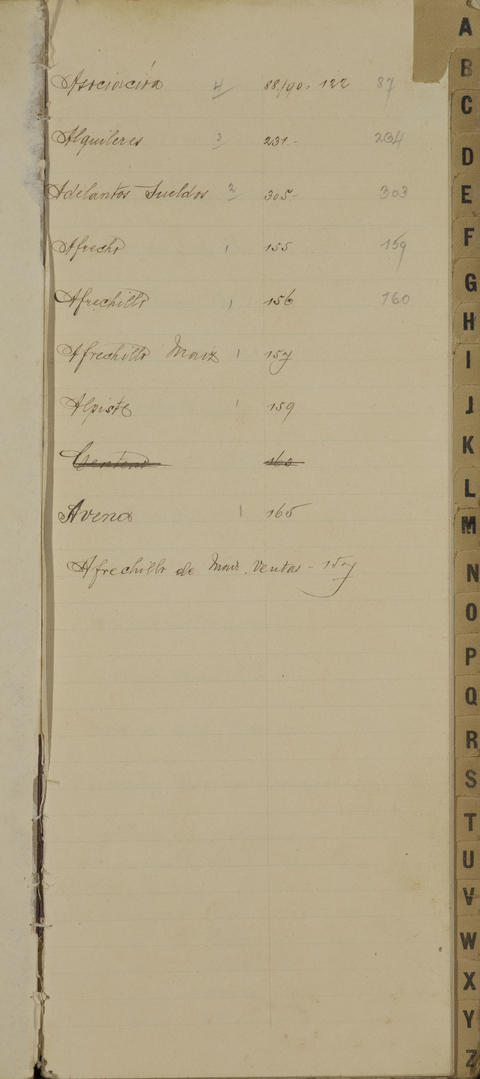 Asociación 4/ 88/90. 122 87
Alquileres 3/ 231.- 234
Adelantos Sueldos 2/ 305.- 303
Afrecho 1 155 159
Afrechillo 1 156 160
Afrechillo Maiz 1 157
Alpiste 1 159
Centeno 163
Avena 1 165
Afrechillo de Maiz. Ventas - 157
A
B
C
D
E
F
G
H
I
J
K
L
M
N
O
P
Q
R
S
T
U
V
W
X
Y
Z